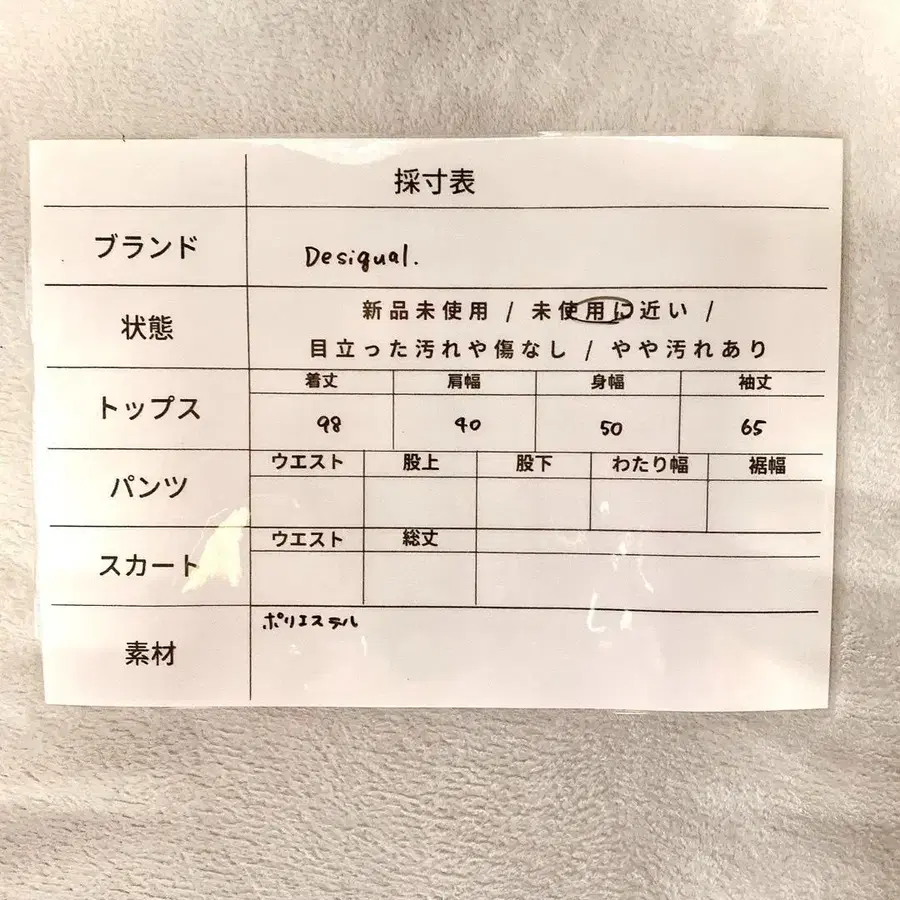 採寸表
ブランド
Desigual.
状態
新品未使用 / 未使用に近い /
目立った汚れや傷なし / やや汚れあり
トップス
着丈 肩幅 身幅 袖丈
98 40 50 65
パンツ
ウエスト 股上 股下 わたり幅 裾幅
スカート
ウエスト 総丈
素材
ポリエステル